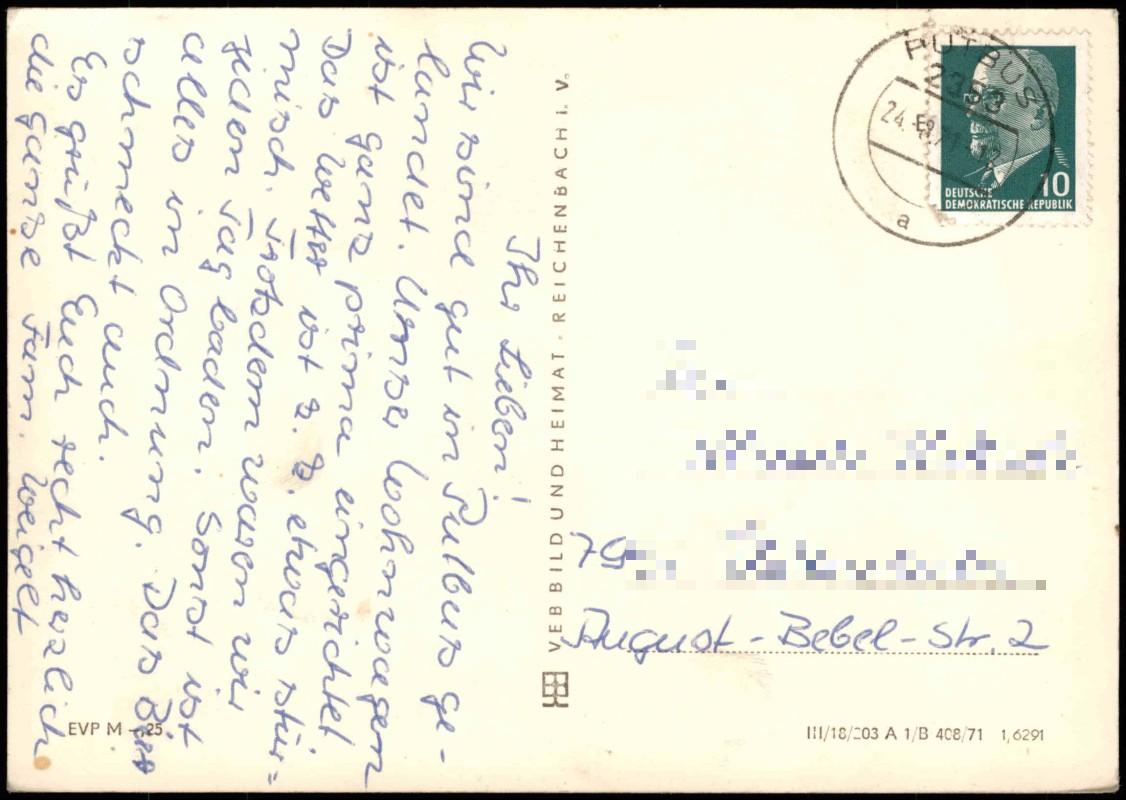 Ihr Lieben!
Wir sind gut in Putbus ge-
landet. Unser Wohnwagen
ist ganz prima eingerichtet
Das Wetter ist z. Z. etwas stür=
misch. Trotzdem waren wir
jeden Tag baden. Sonst ist
alles in Ordnung. Das Bier
schmeckt auch.
Es grüßt Euch recht herzlich
die ganze Fam. Weigelt
VEB BILD UND HEIMAT · REICHENBACH I. V.
EVP M –,25
PUTBUS
2383
24.
a
10
DEUTSCHE
DEMOKRATISCHE REPUBLIK
79
August-Bebel-Str. 2
III/18/203 A 1/B 408/71 1,6291